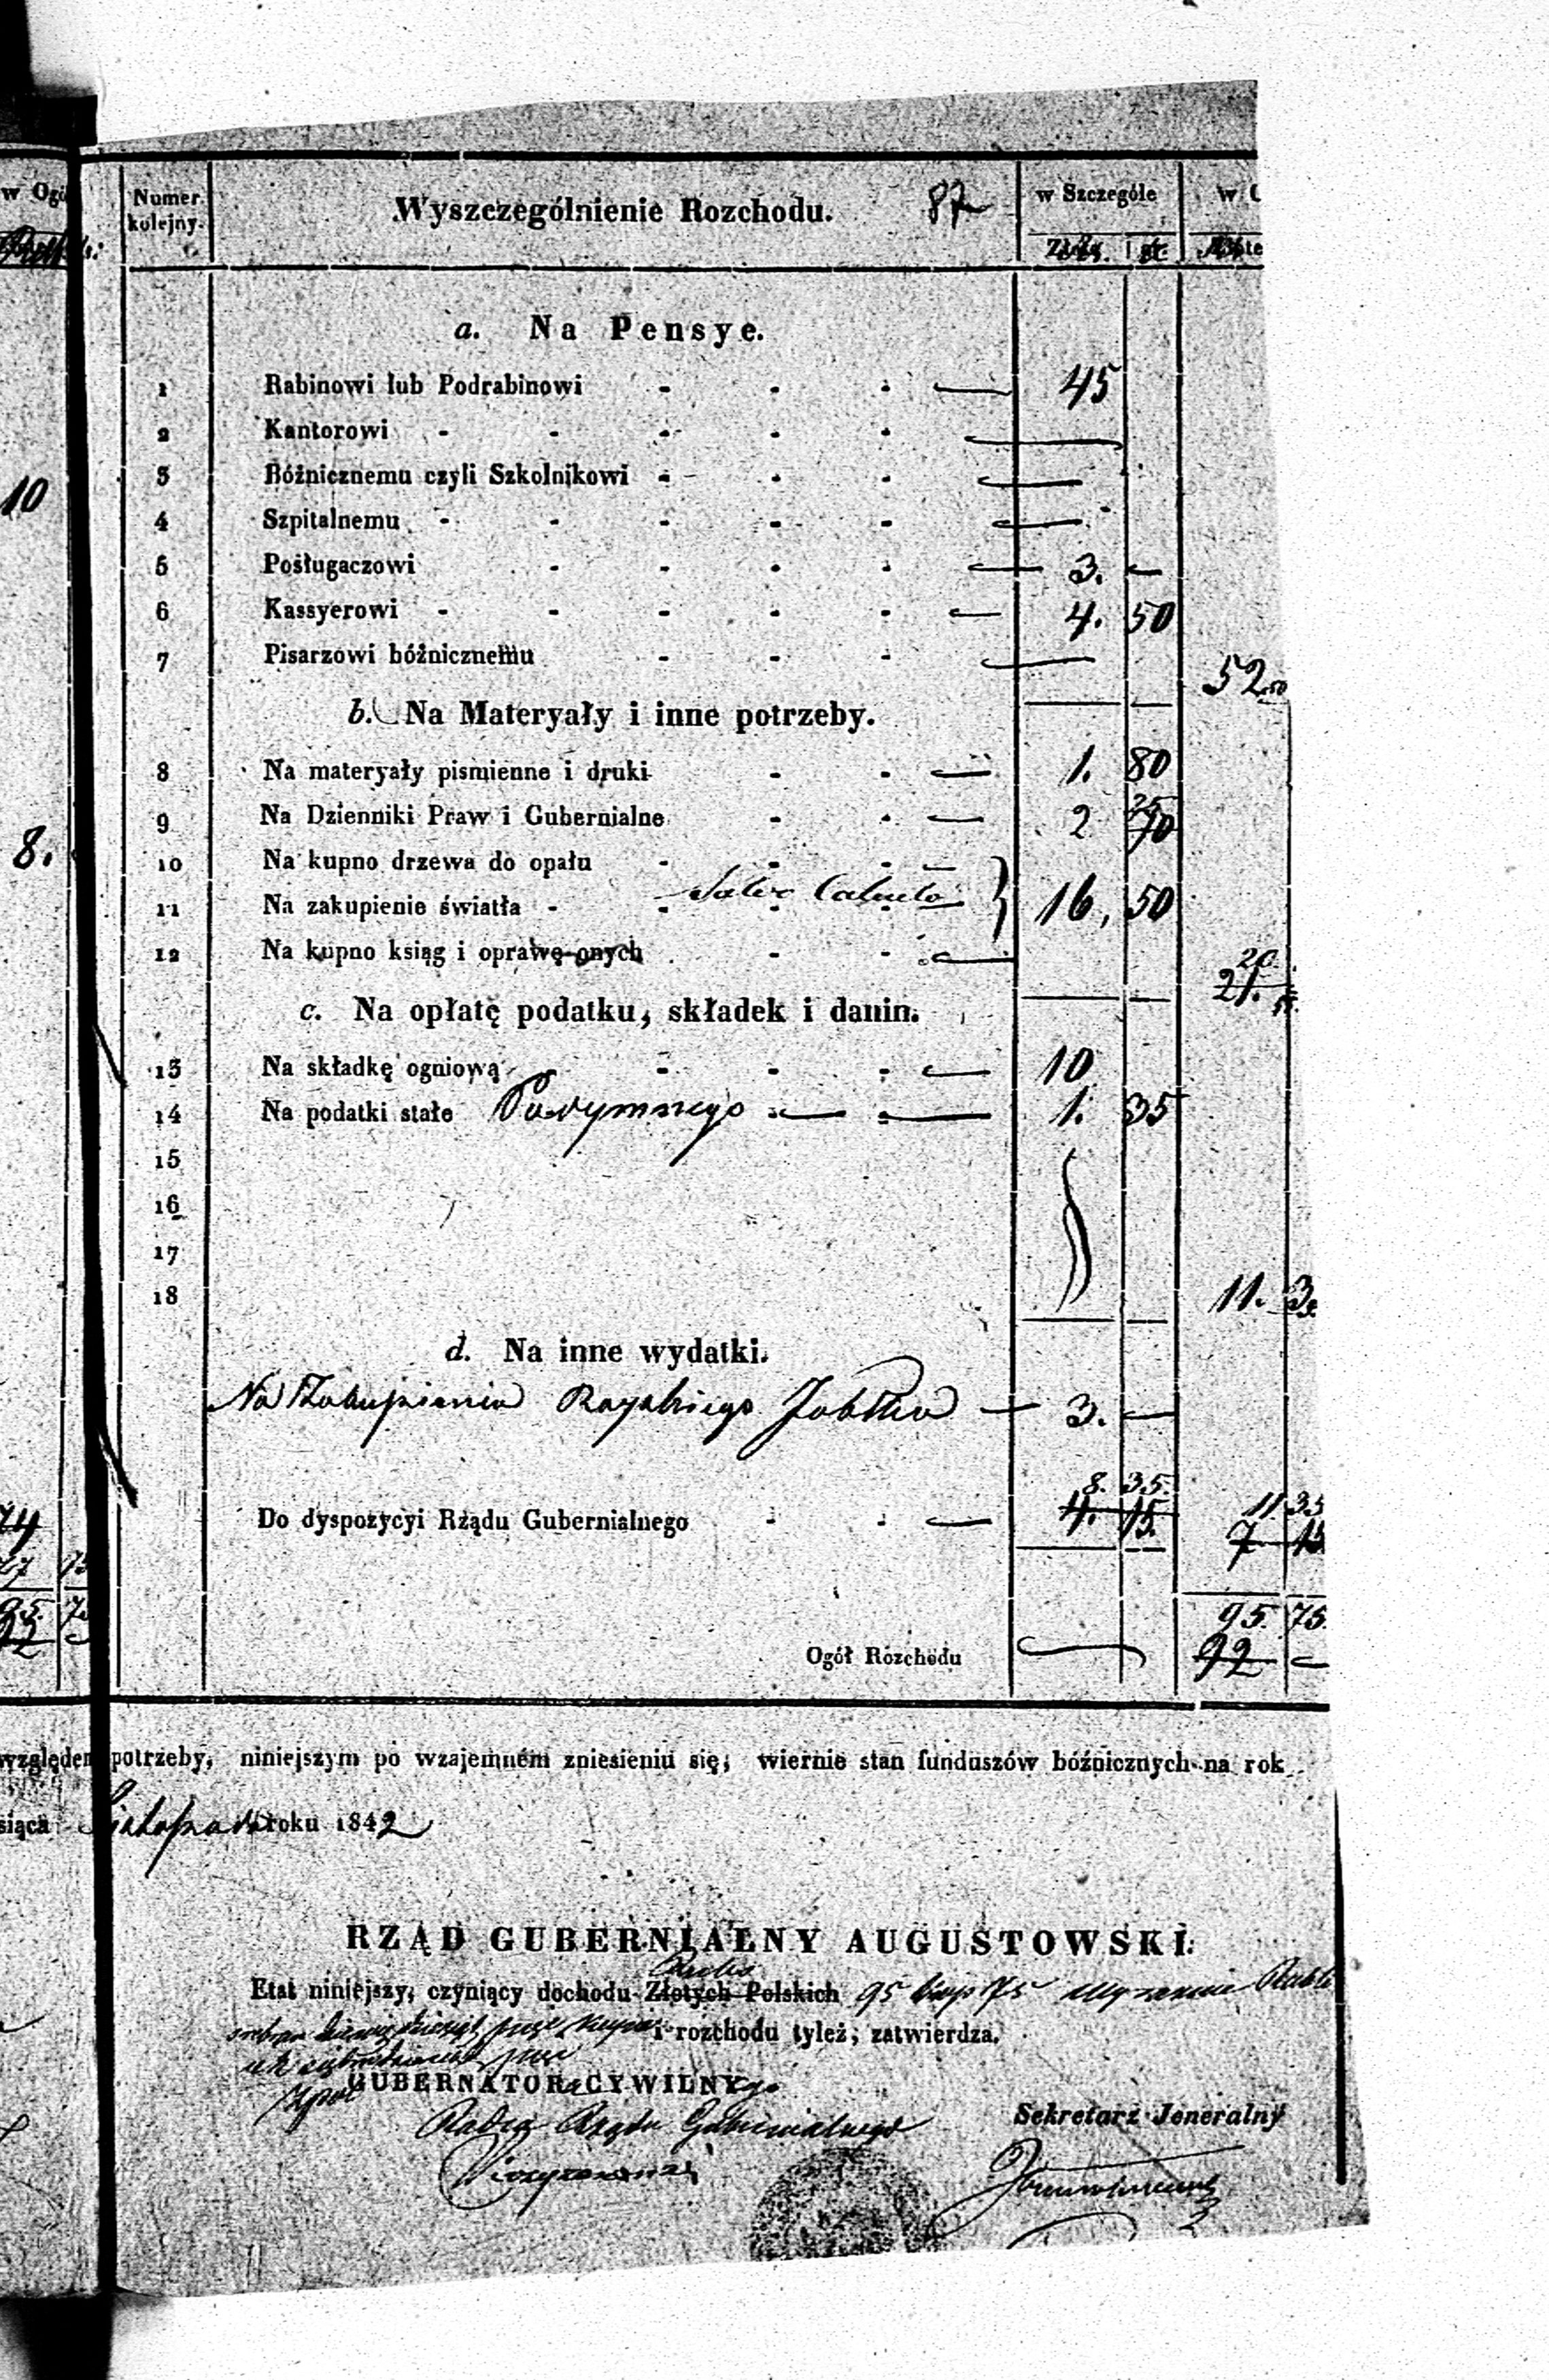 w Ogó
Numer kolejny.
Wyszczególnienie Rozchodu. 87
w Szczególe
w O
Złote gr.
a. Na Pensye.
1 Rabinowi lub Podrabinowi - - - 45
2 Kantorowi - - - - -
3 Bóżnicznemu czyli Szkolnikowi - - -
10
4 Szpitalnemu - - - - -
5 Posługaczowi - - - - 3. —
6 Kassyerowi - - - - - 4. 50
7 Pisarzowi bóżnicznemu - - -
52 50
b. Na Materyały i inne potrzeby.
8 Na materyały piśmienne i druki - - 1. 80
9 Na Dzienniki Praw i Gubernialne - - 2 25 70
8.
10 Na kupno drzewa do opału - - -
11 Na zakupienie światła - - - - Salvo Calculo } 16, 50
12 Na kupno ksiąg i oprawę onych - -
20
21.
c. Na opłatę podatku, składek i danin.
13 Na składkę ogniową - - - 10
14 Na podatki stałe Podymnego 1. 35
15
16
17
18
11. 3
d. Na inne wydatki.
Na Zakupienie Rayskiego Jabłka — 3. —
8. 35.
11 35
Do dyspozycyi Rządu Gubernialnego - - 4. 15.
7 15
74
95. 75.
Ogół Rozchodu
92 —
względem potrzeby, niniejszym po wzajemném zniesieniu się, wiernie stan funduszów bóżnicznych na rok
siąca Listopada roku 1842
RZĄD GUBERNIALNY AUGUSTOWSKI.
Etat niniejszy, czyniący dochodu Złotych Polskich 95 kop 75 wyraźnie Rubli
srebrem dziewięćdziesiąt pięć kopiejek i rozchodu tyleż, zatwierdza.
siedmdziesiąt pięć
GUBERNATORA CYWILNYgo
Radca Rządu Gubernialnego
Sekretarz Jeneralny